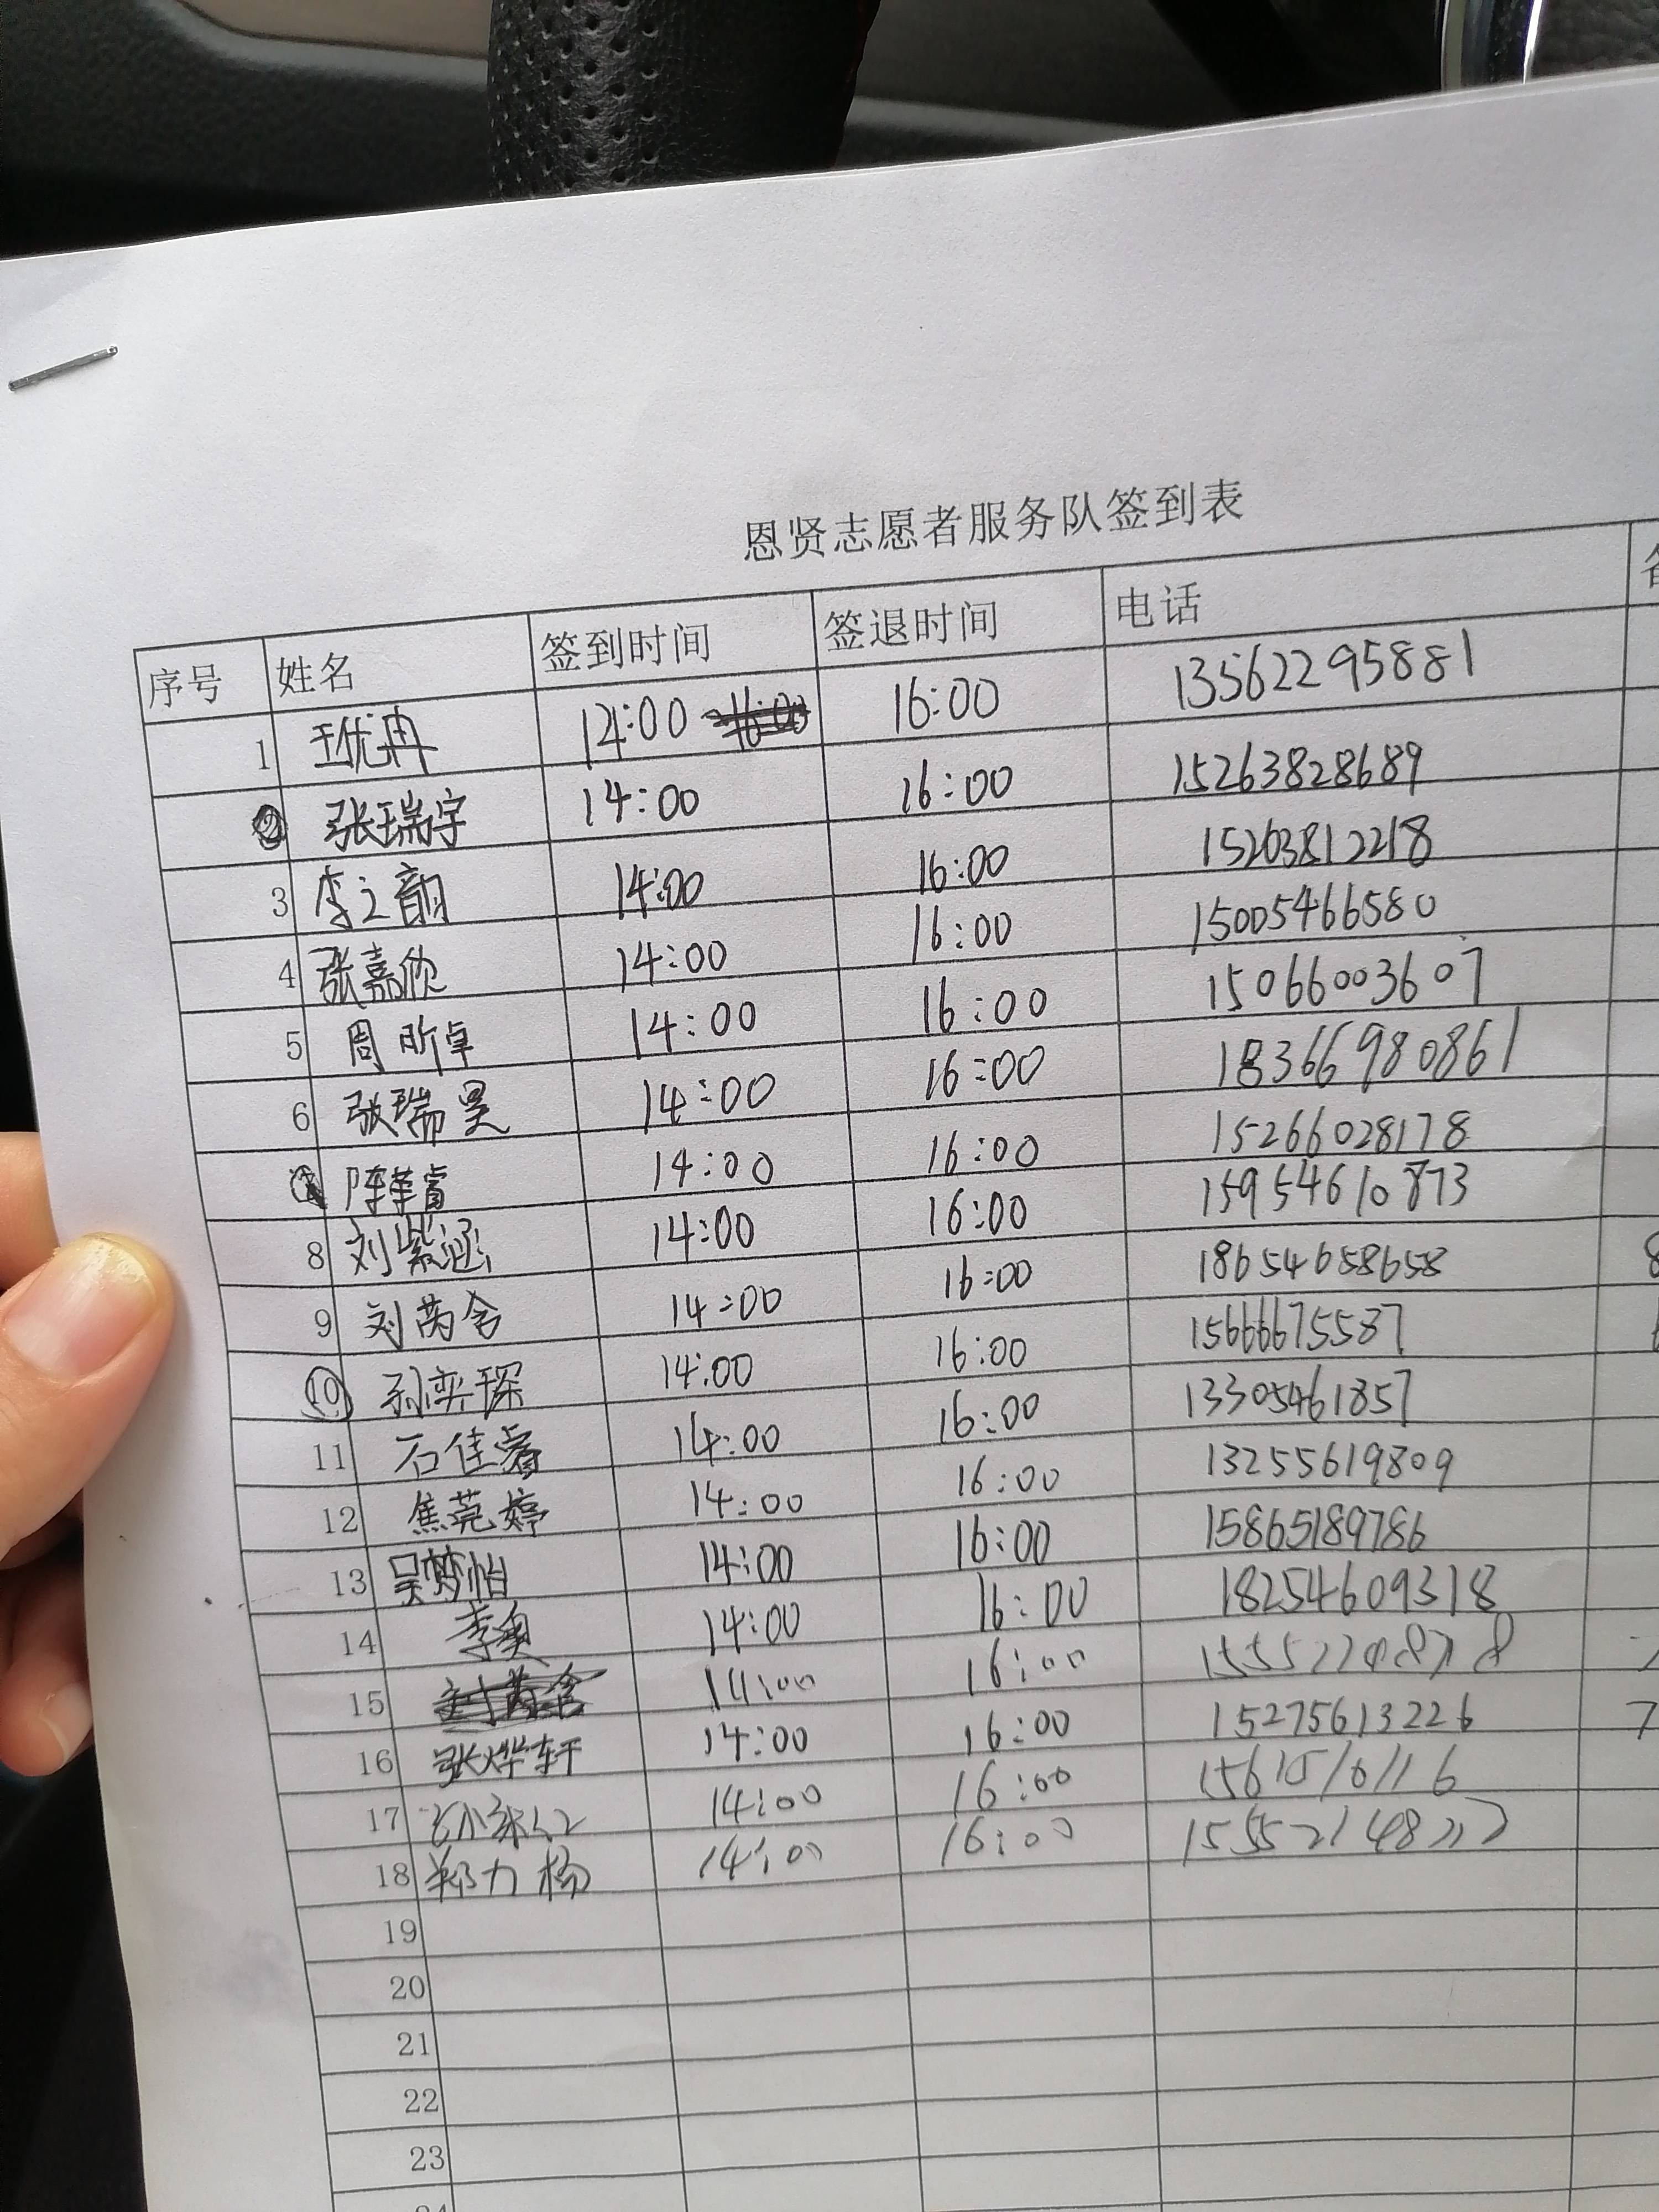 恩贤志愿者服务队签到表
序号 姓名 签到时间 签退时间 电话
1 王优冉 14:00 16:00 13562295881
张瑞宇 14:00 16:00 15263828689
3 李之韵 14:00 16:00 15263812218
4 张嘉欣 14:00 16:00 15005466580
5 周昕卓 14:00 16:00 15066003607
6 张瑞昊 14:00 16:00 18366980861
14:00 16:00 15266028178
8 刘紫涵 14:00 16:00 15954610873
9 刘芮含 14:00 16:00 18654658658
10 孙奕琛 14:00 16:00 15666675587
11 石佳睿 14:00 16:00 13305461857
12 焦莞婷 14:00 16:00 13255619809
13 吴梦怡 14:00 16:00 15865189786
14 李奥 14:00 16:00 18254609318
15 14:00 16:00
16 张烨轩 14:00 16:00 15275613226
17 14:00 16:00
18 郑力杨 14:00 16:00
19
20
21
22
23